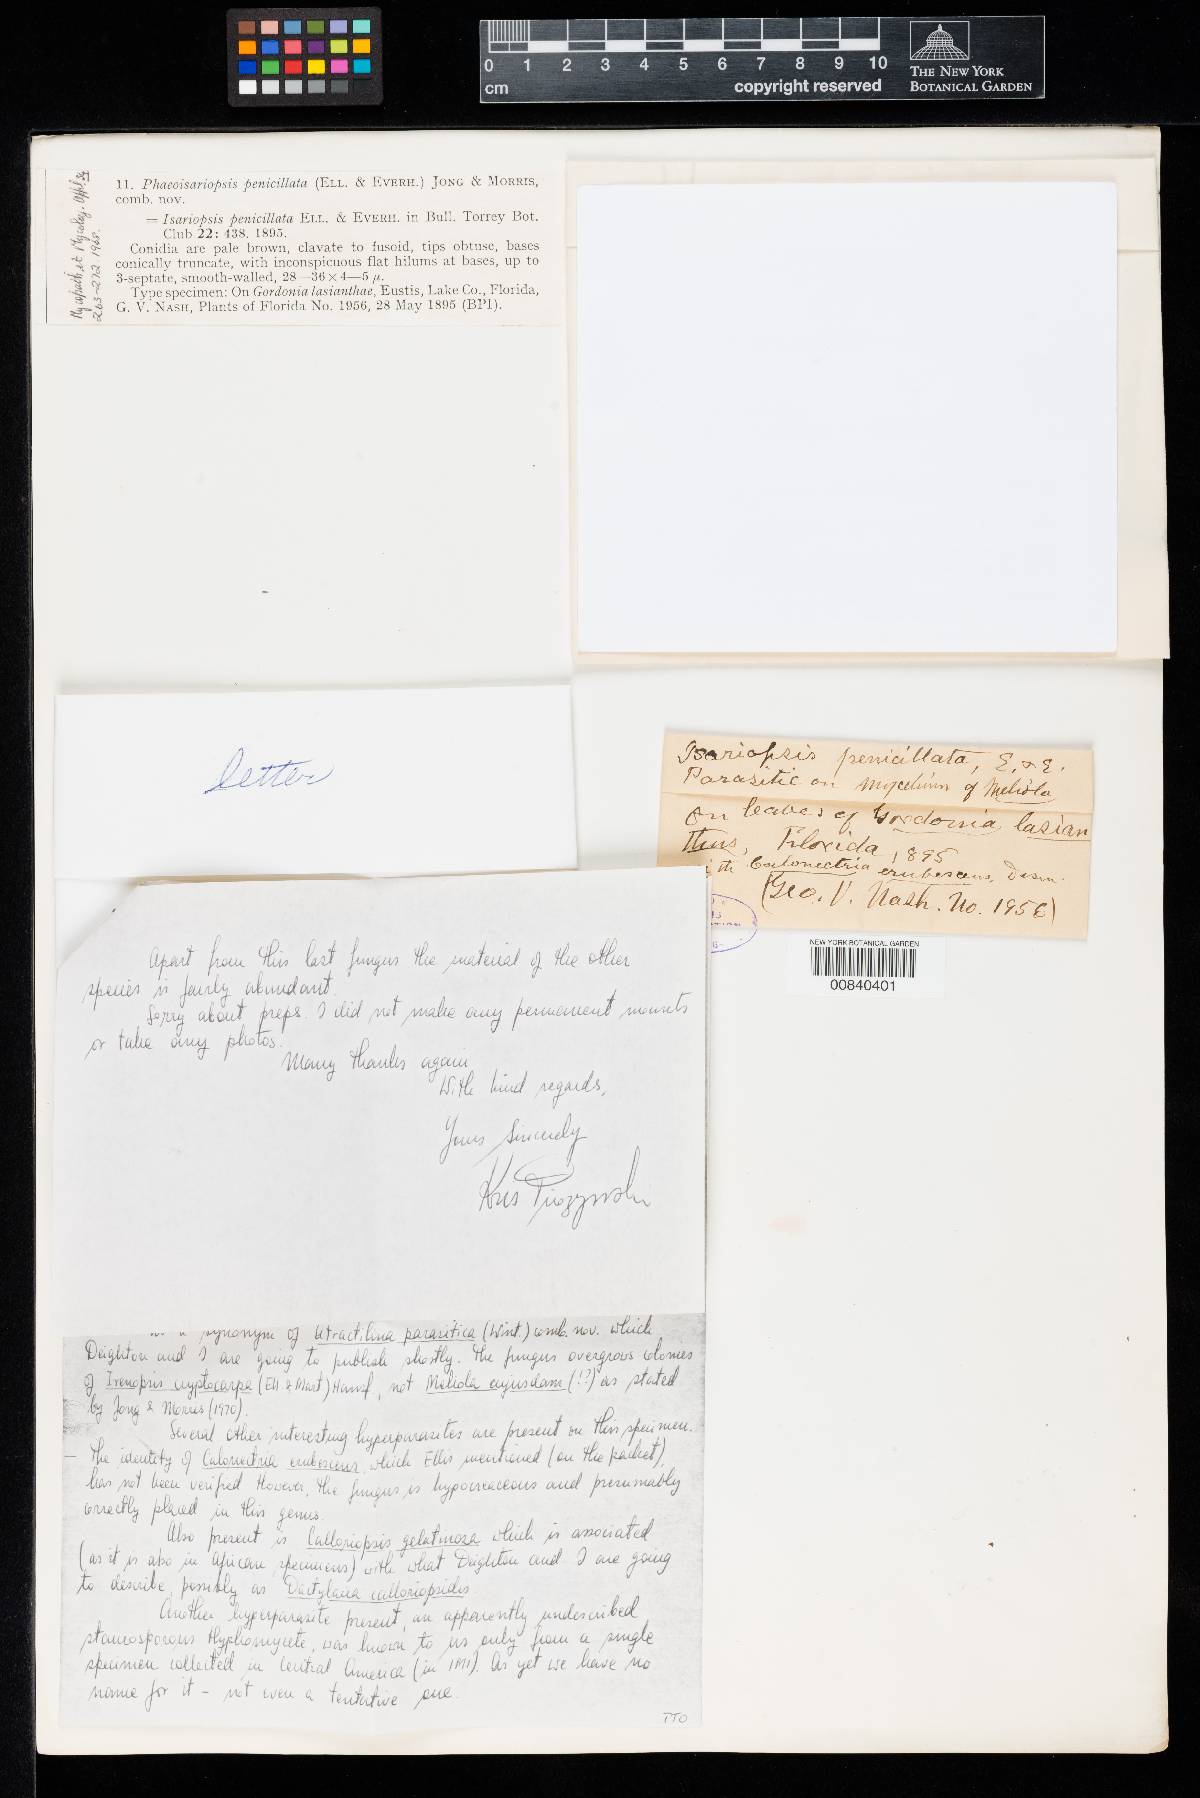 0 1 2 3 4 5 6 7 8 9 10
cm
copyright reserved
THE NEW YORK
BOTANICAL GARDEN
Mycopath. et Mycolog. Appl. 34
263-272 1968.
11. Phaeoisariopsis penicillata (ELL. & EVERH.) JONG & MORRIS,
comb. nov.
= Isariopsis penicillata ELL. & EVERH. in Bull. Torrey Bot.
Club 22: 438. 1895.
Conidia are pale brown, clavate to fusoid, tips obtuse, bases
conically truncate, with inconspicuous flat hilums at bases, up to
3-septate, smooth-walled, 28—36 × 4—5 µ.
Type specimen: On Gordonia lasianthae, Eustis, Lake Co., Florida,
G. V. NASH, Plants of Florida No. 1956, 28 May 1895 (BPI).
letter
Isariopsis penicillata, E. & E.
Parasitic on mycelium of Meliola
on leaves of Gordonia lasian
thus, Florida, 1895
ith Calonectria erubescens, Desm.
(Geo. V. Nash. No. 1956)
NEW YORK BOTANICAL GARDEN
00840401
Apart from this last fungus the material of the other
species is fairly abundant.
Sorry about preps. I did not make any permanent mounts
or take any photos.
Many thanks again
With kind regards,
Yours Sincerely
Kris Pirozynski
a synonym of Atractilina parasitica (Wint.) comb. nov. which
Deighton and I are going to publish shortly. The fungus overgrows colonies
of Irenopsis cryptocarpa (Ell & Mart) Hansf, not Meliola cujusdam (!?) as stated
by Jong & Morris (1970).
Several other interesting hyperparasites are present on this specimen.
— The identity of Calonectria erubescens, which Ellis mentioned (on the packet),
has not been verified However, the fungus is hypocreaceous and presumably
correctly placed in this genus.
Also present is Calloriopsis gelatinosa which is associated
(as it is also in African specimens) with what Deighton and I are going
to describe, possibly as Dactylaria calloriopsidis.
Another hyperparasite present, an apparently undescribed
staurosporous Hyphomycete, was known to us only from a single
specimen collected in Central America (in 1911). As yet we have no
name for it - not even a tentative one.
PTO